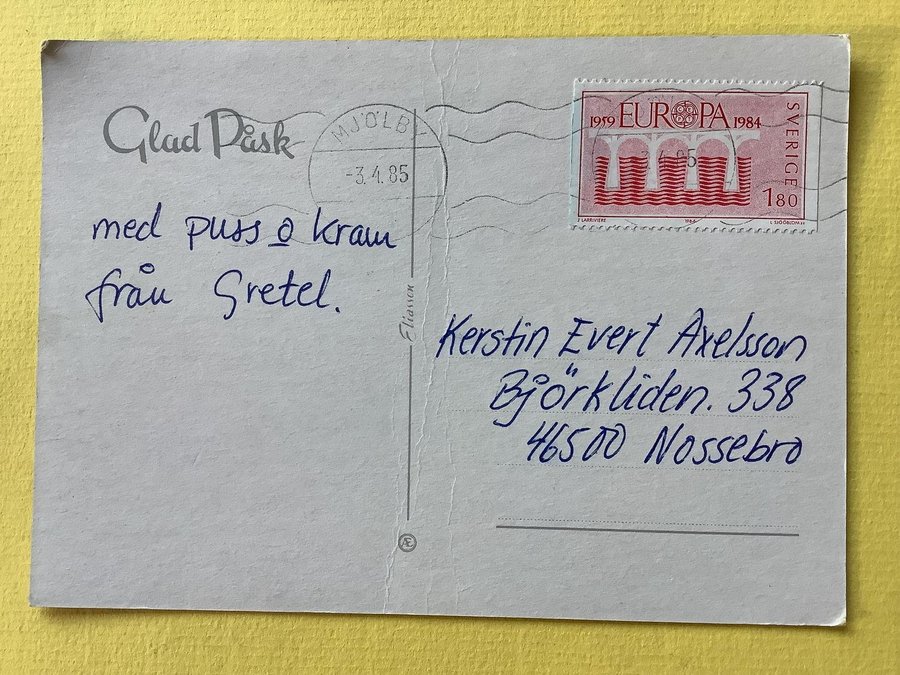 Glad Påsk
med puss o kram
från Gretel.
MJÖLBY
-3.4.85
Eliasson
Æ
1959 EUROPA 1984
SVERIGE
180
P. LARRIVIERE
1984
L. SJÖÖBLOM SC
4.85
Kerstin Evert Axelsson
Björkliden. 338
46500 Nossebro